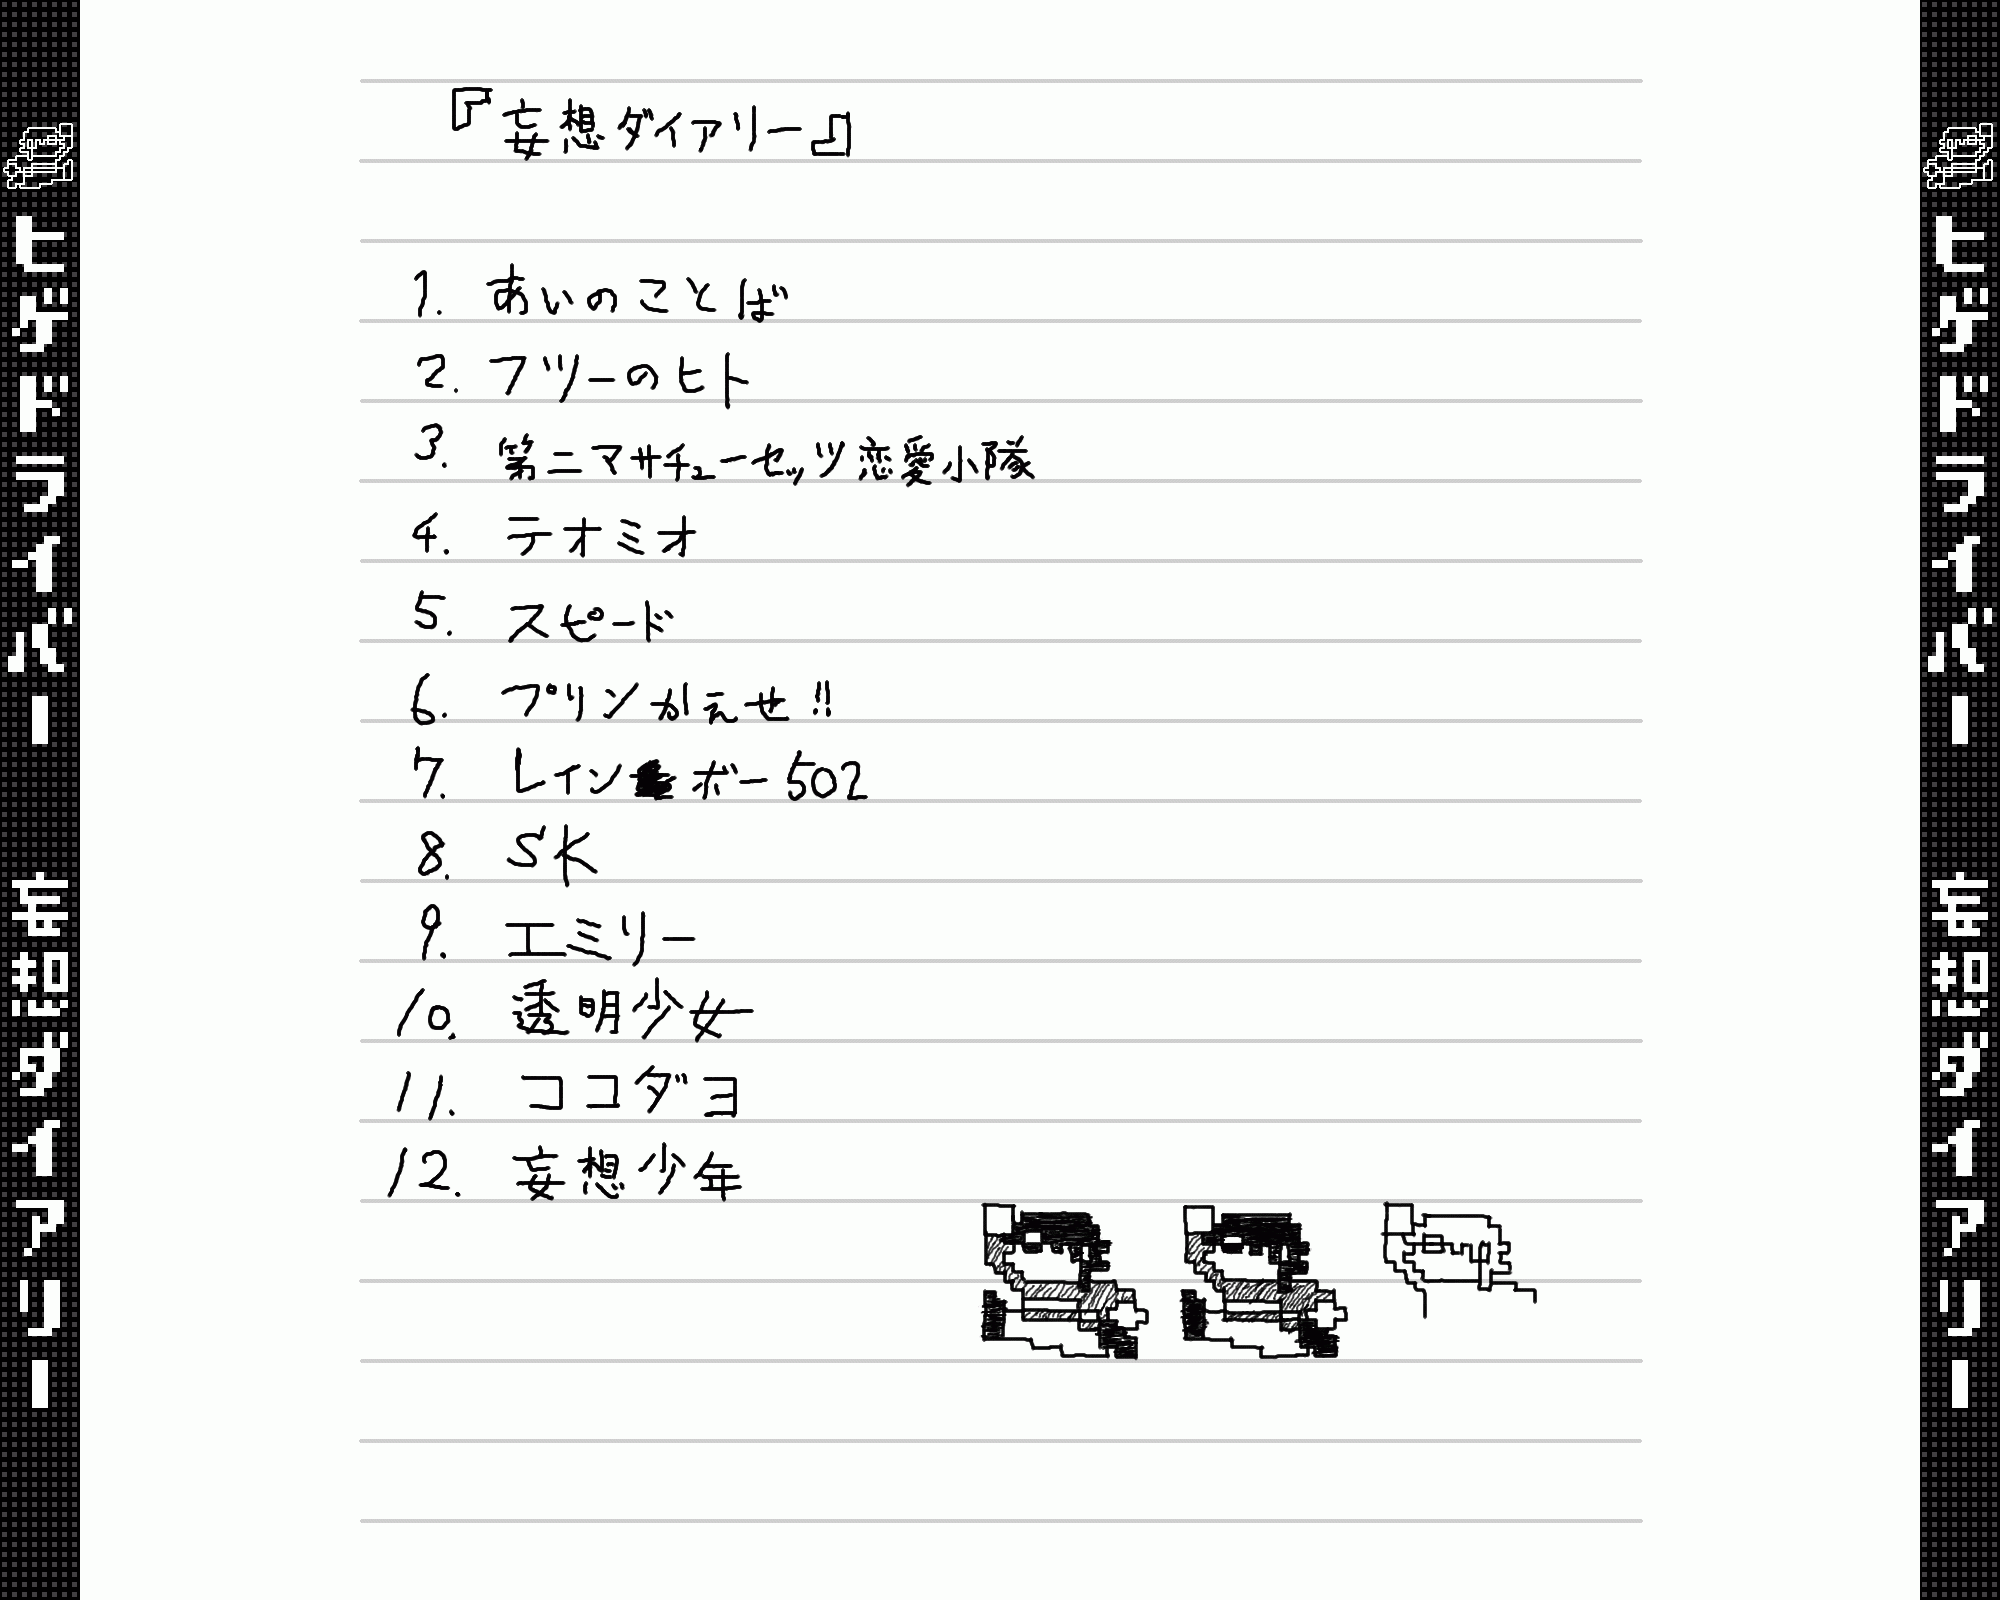 ヒゲドライバー 妄想ダイアリー
『妄想ダイアリー』
1. あいのことば
2. フツーのヒト
3. 第二マサチューセッツ恋愛小隊
4. テオミオ
5. スピード
6. プリンかえせ!!
7. レインボー502
8. SK
9. エミリー
10. 透明少女
11. ココダヨ
12. 妄想少年
ヒゲドライバー 妄想ダイアリー